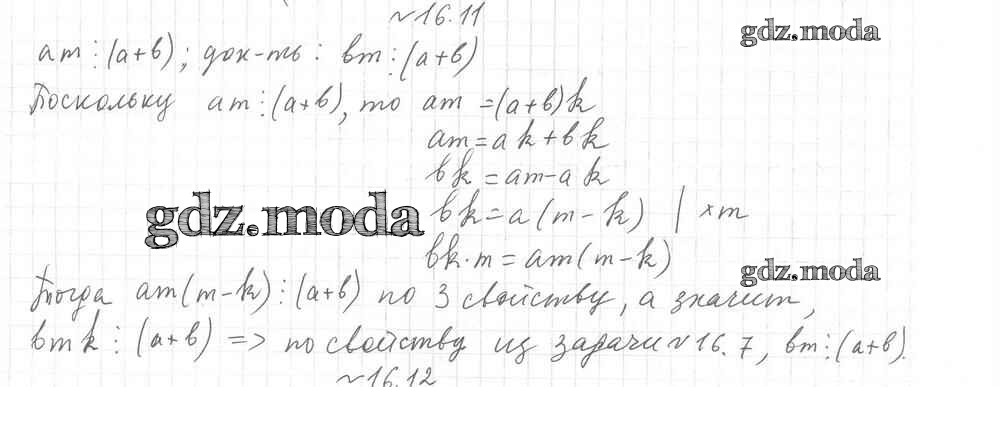 №16.11
gdz.moda
am⋮(a+b); док-ть: bm⋮(a+b)
Поскольку am⋮(a+b), то am=(a+b)k
am=ak+bk
bk=am-ak
gdz.moda
bk=a(m-k) | ×m
bk·m=am(m-k)
gdz.moda
Тогда am(m-k)⋮(a+b) по 3 свойству, а значит,
bmk⋮(a+b) => по свойству из задачи №16.7, bm⋮(a+b).
№16.12